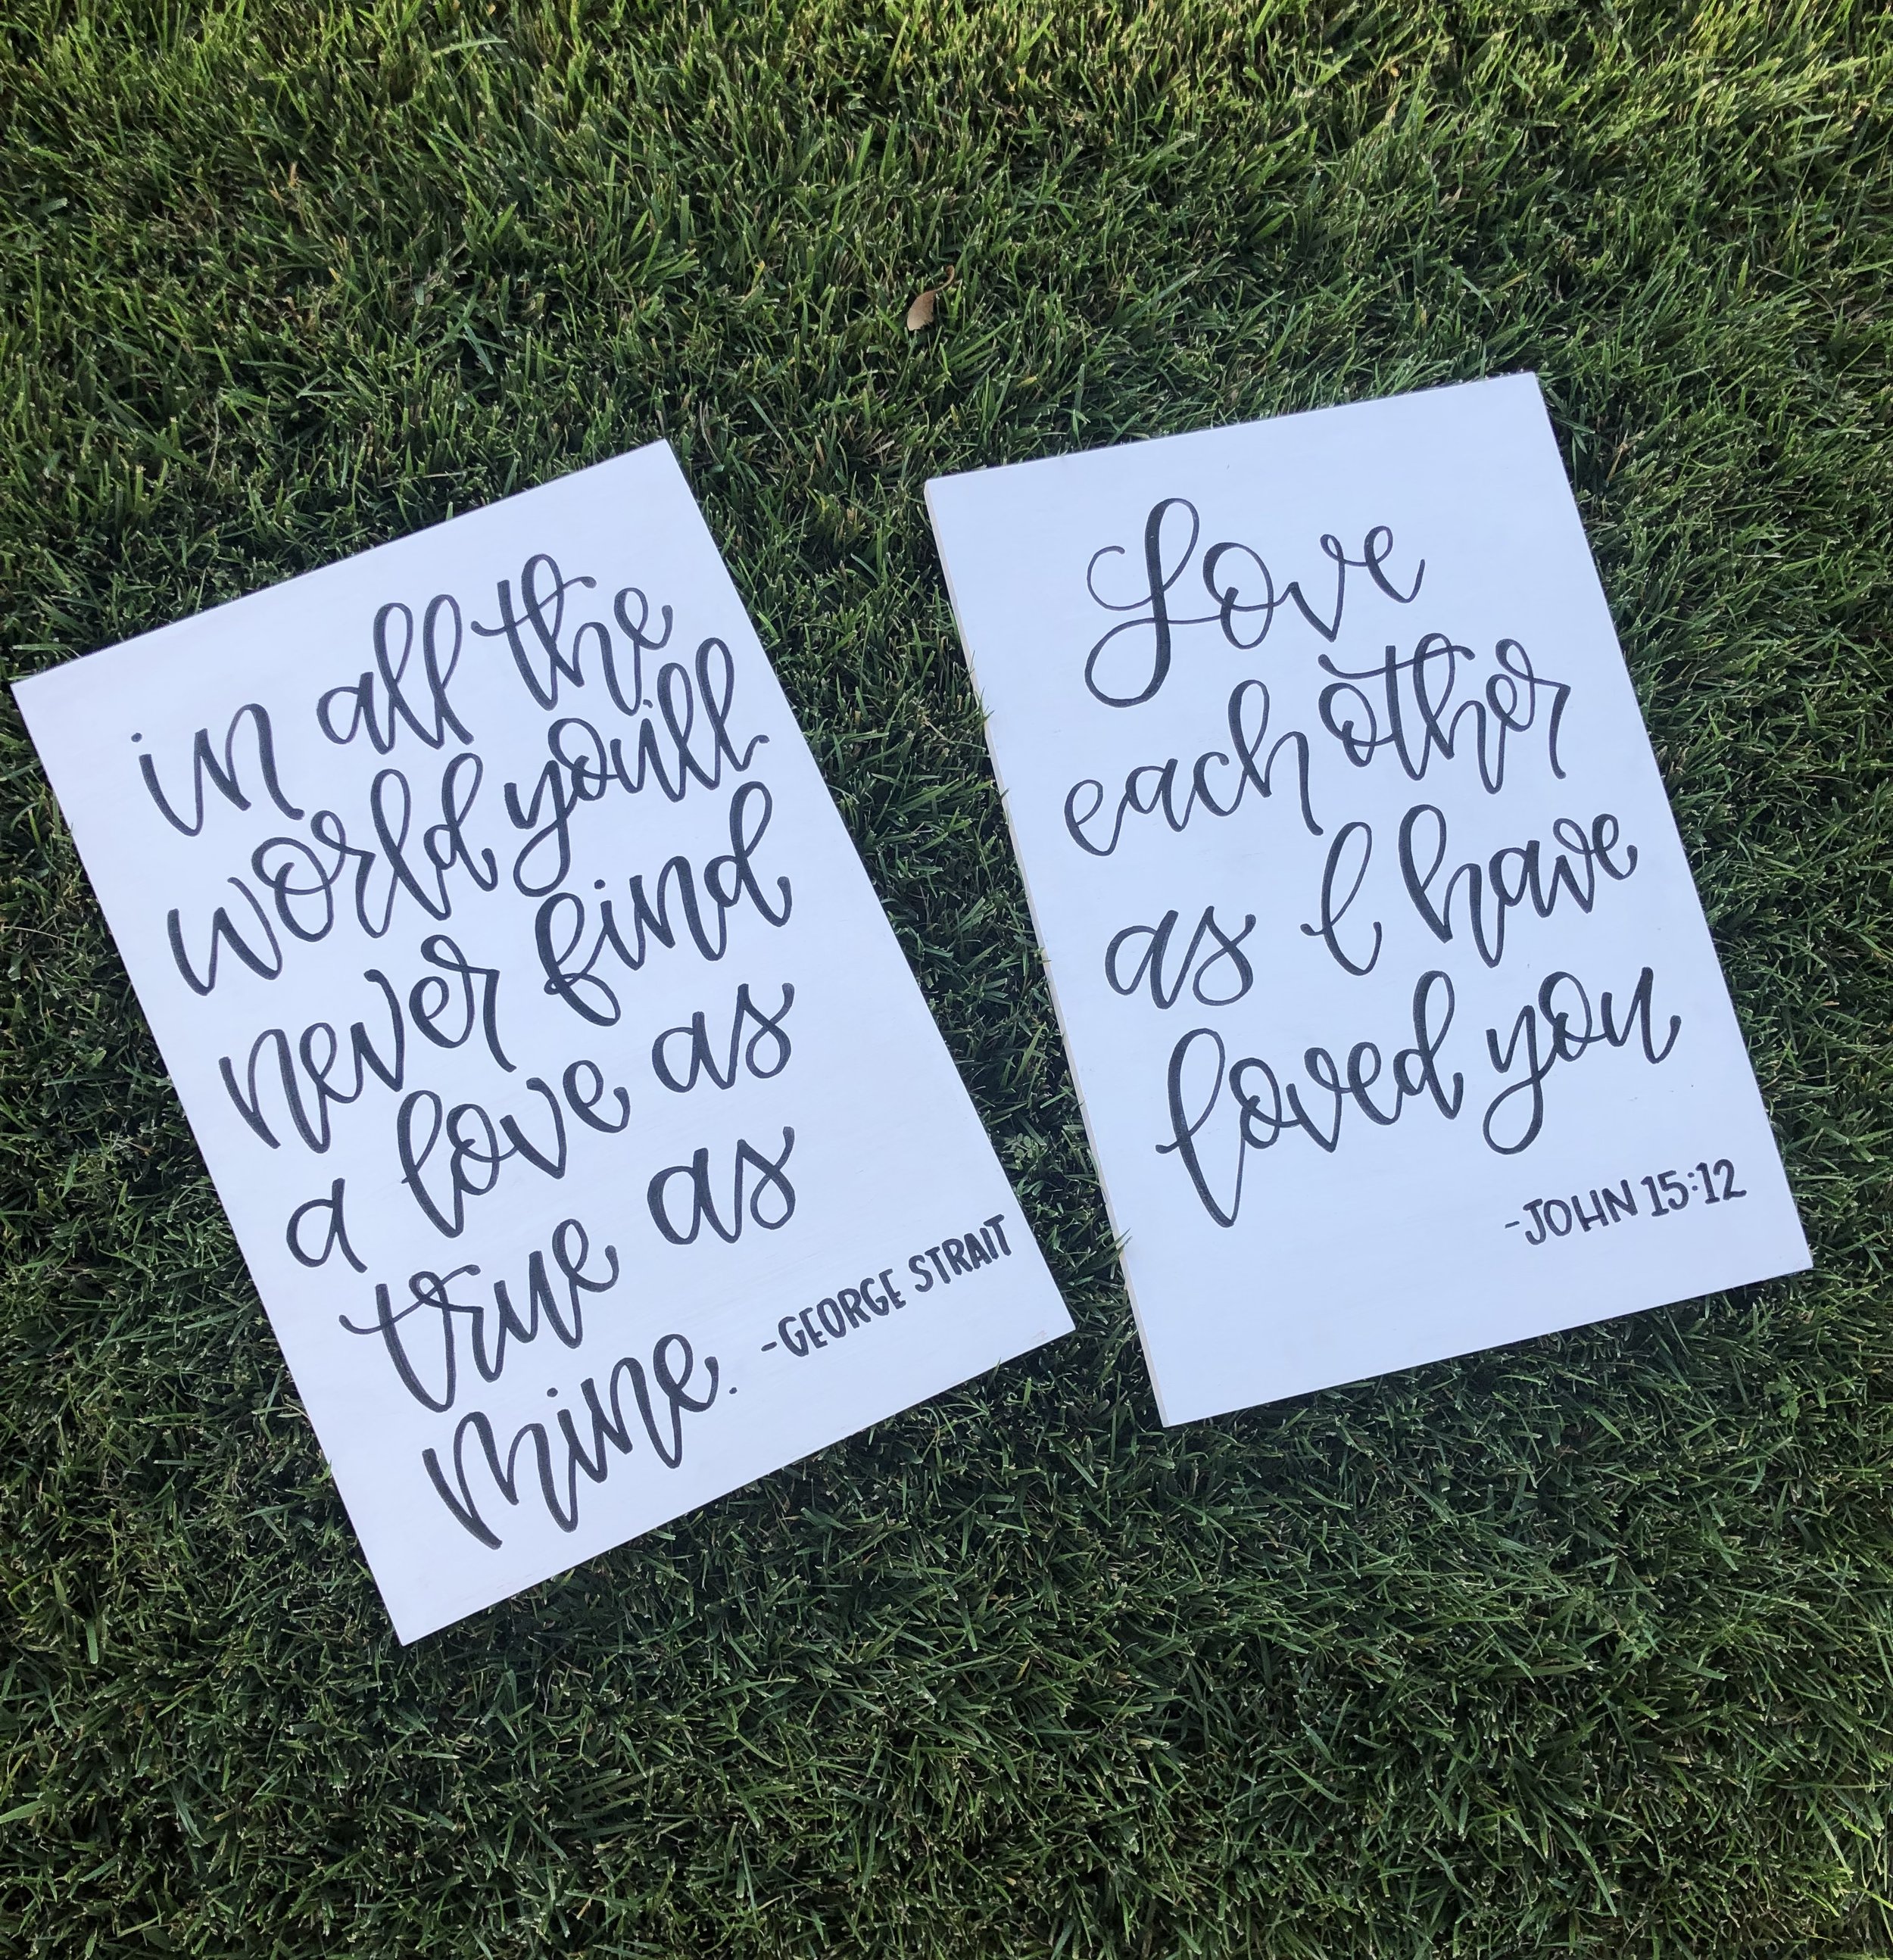 in all the
world you'll
never find
a love as
true as
mine.
-GEORGE STRAIT
Love
each other
as I have
loved you
-JOHN 15:12